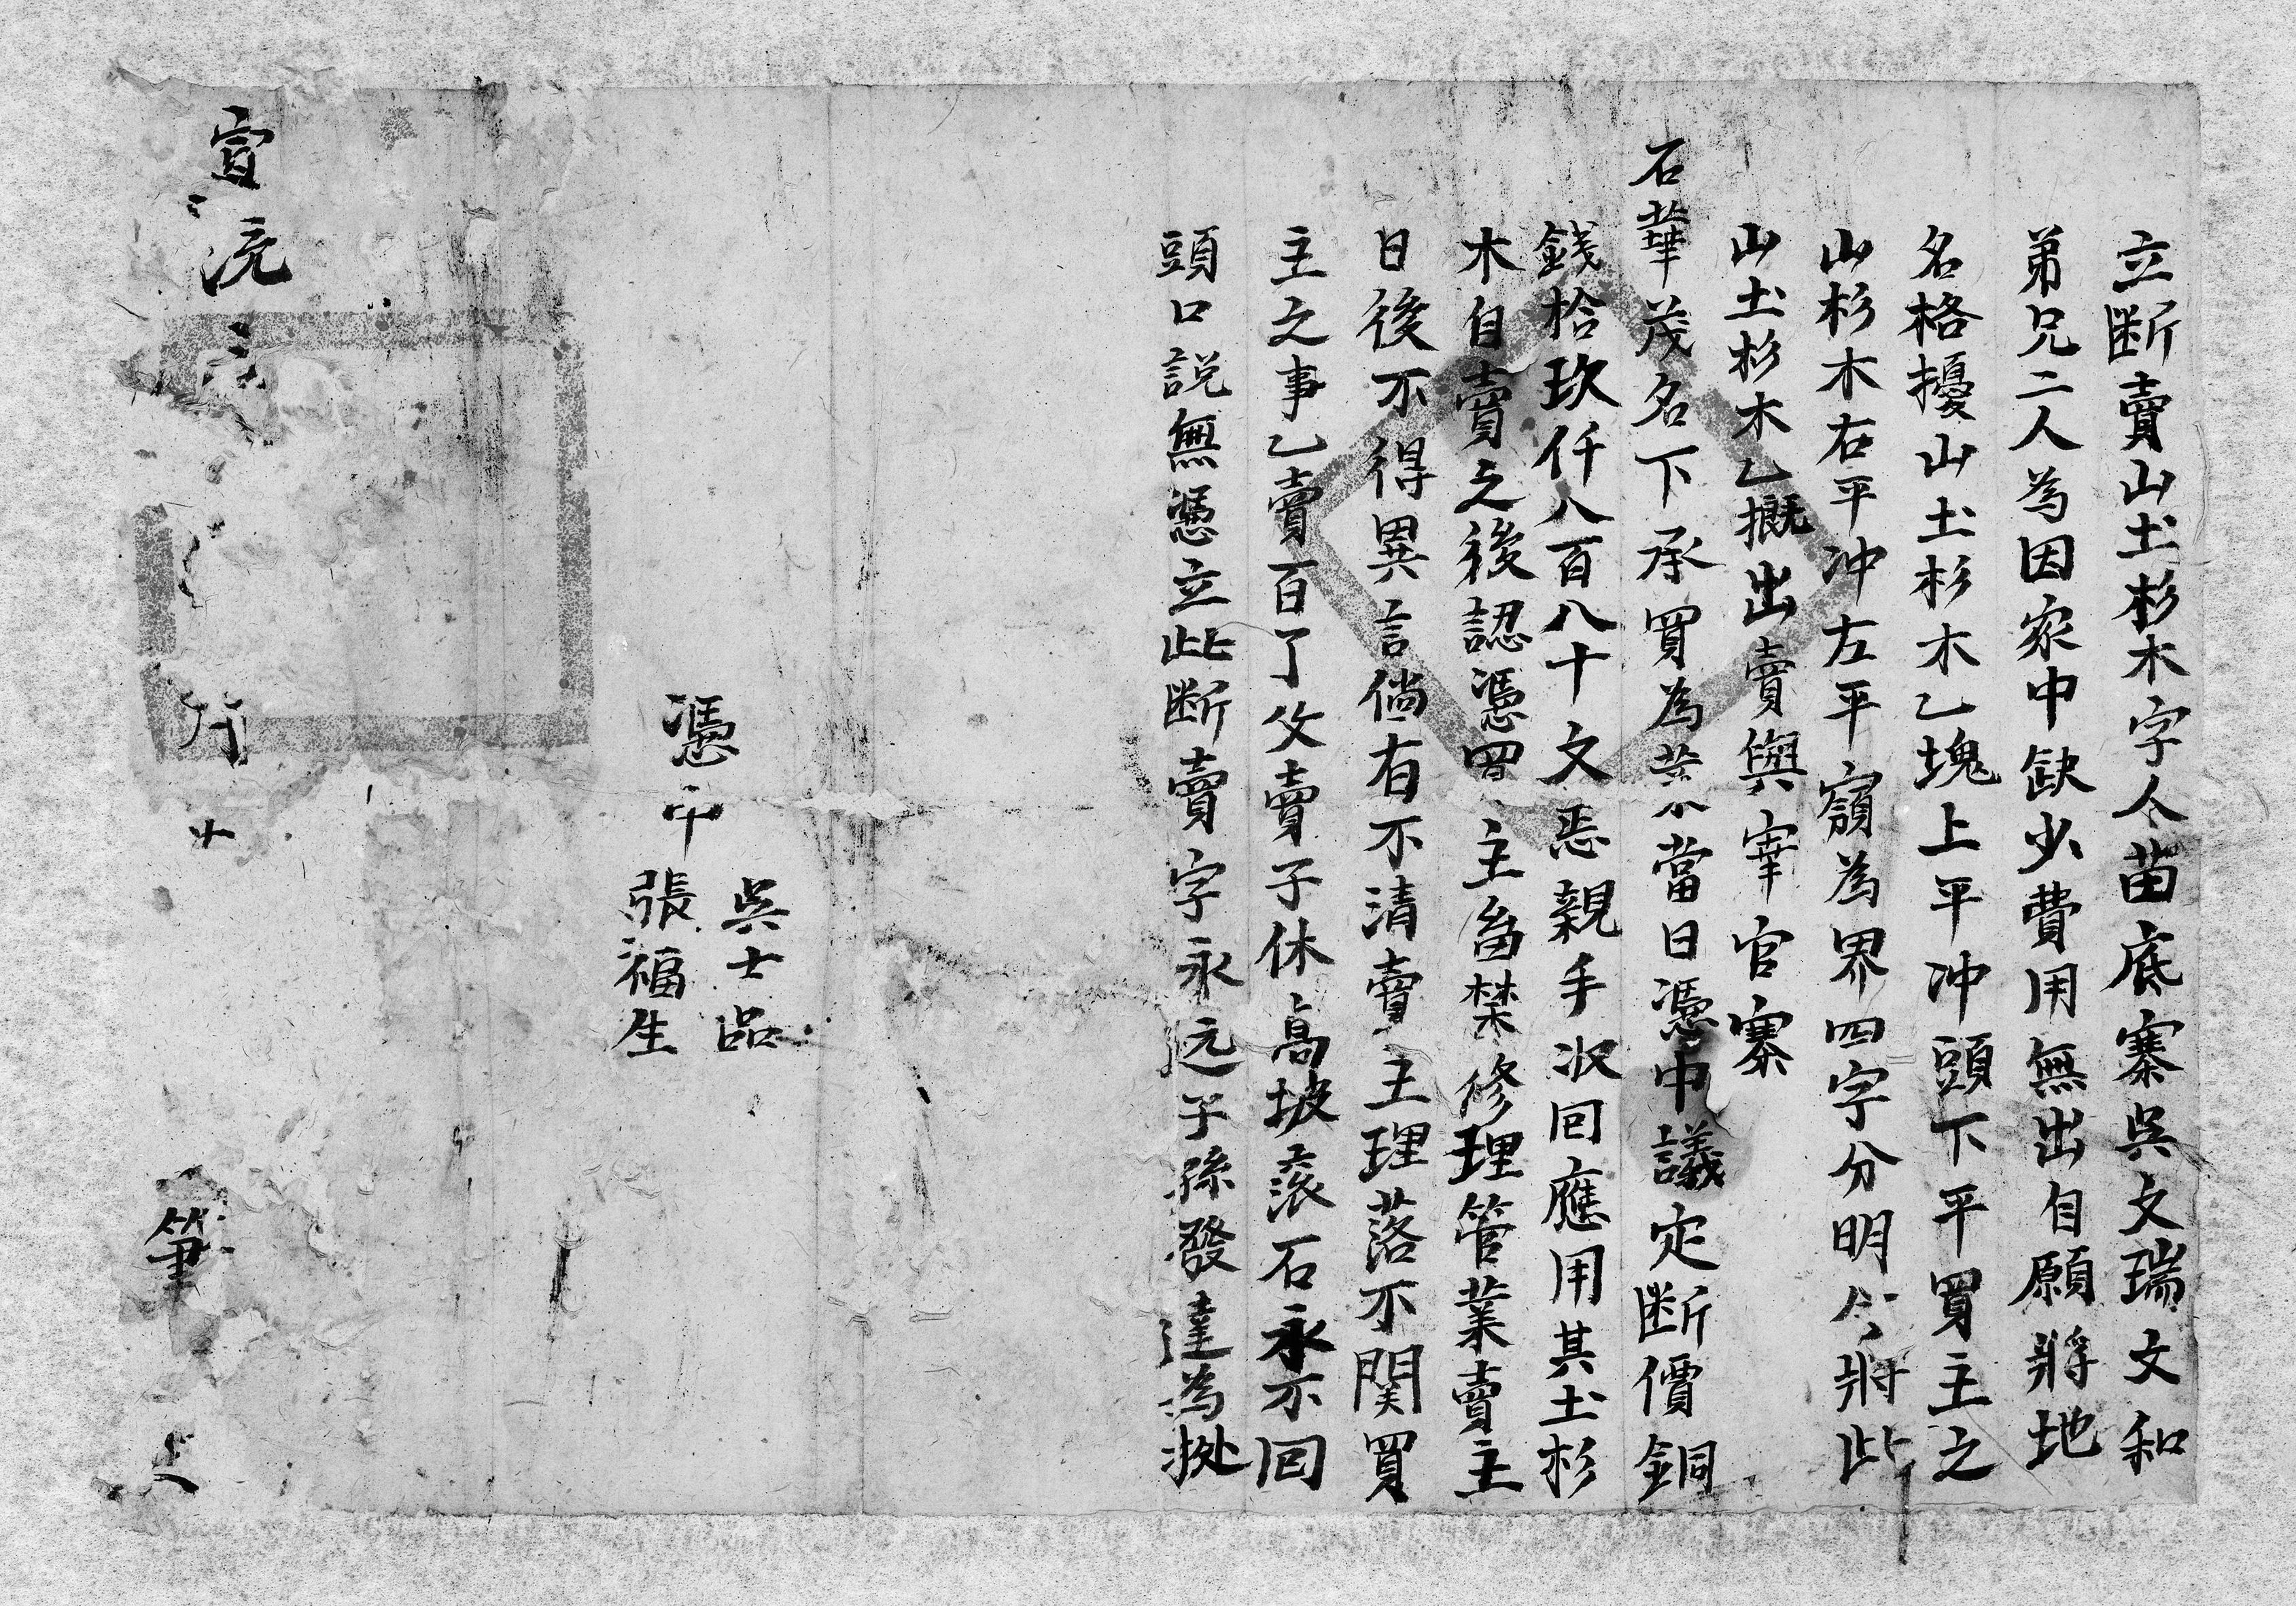 立断賣山土杉木字人苗底寨吳文瑞文和
弟兄二人為因家中缺少費用無出自願將地
名格擾山土杉木乙塊上平冲頭下平買主之
山杉木右平冲左平嶺為界四字分明今將此
山土杉木乙概出賣與宰官寨
石華茂名下承買為業當日憑中議定断價銅
錢拾玖仟八百八十文恶親手收回應用其土杉
木自賣之後認憑買主畨禁修理管業賣主
日後不得異言倘有不清賣主理落不関買
主之事乙賣百了父賣子休高坡滚石永不回
頭口説無憑立此断賣字永远子孫發達為拠
憑中
吳士品
張福生
宣統
筆